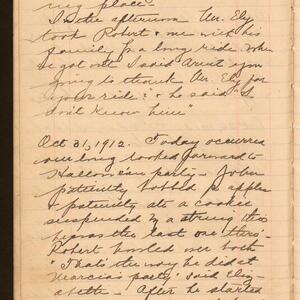 my place.
In the afternoon Mr. Ely
took Robert & me with his
family for a long ride. When
we got out I said Aren't you
going to thank Mr. Ely for
your ride?" & he said "I
don't know him"
Oct 31, 1912. Today occurred
our long looked forward to
Hallowe'en party - John
patiently bobbed for apples
& patiently ate a cookie
suspended by a string tho
he was the last one thro'.
Robert howled over both
"That's the way he did at
Marcia's party" said Eliz-
abeth - After he started